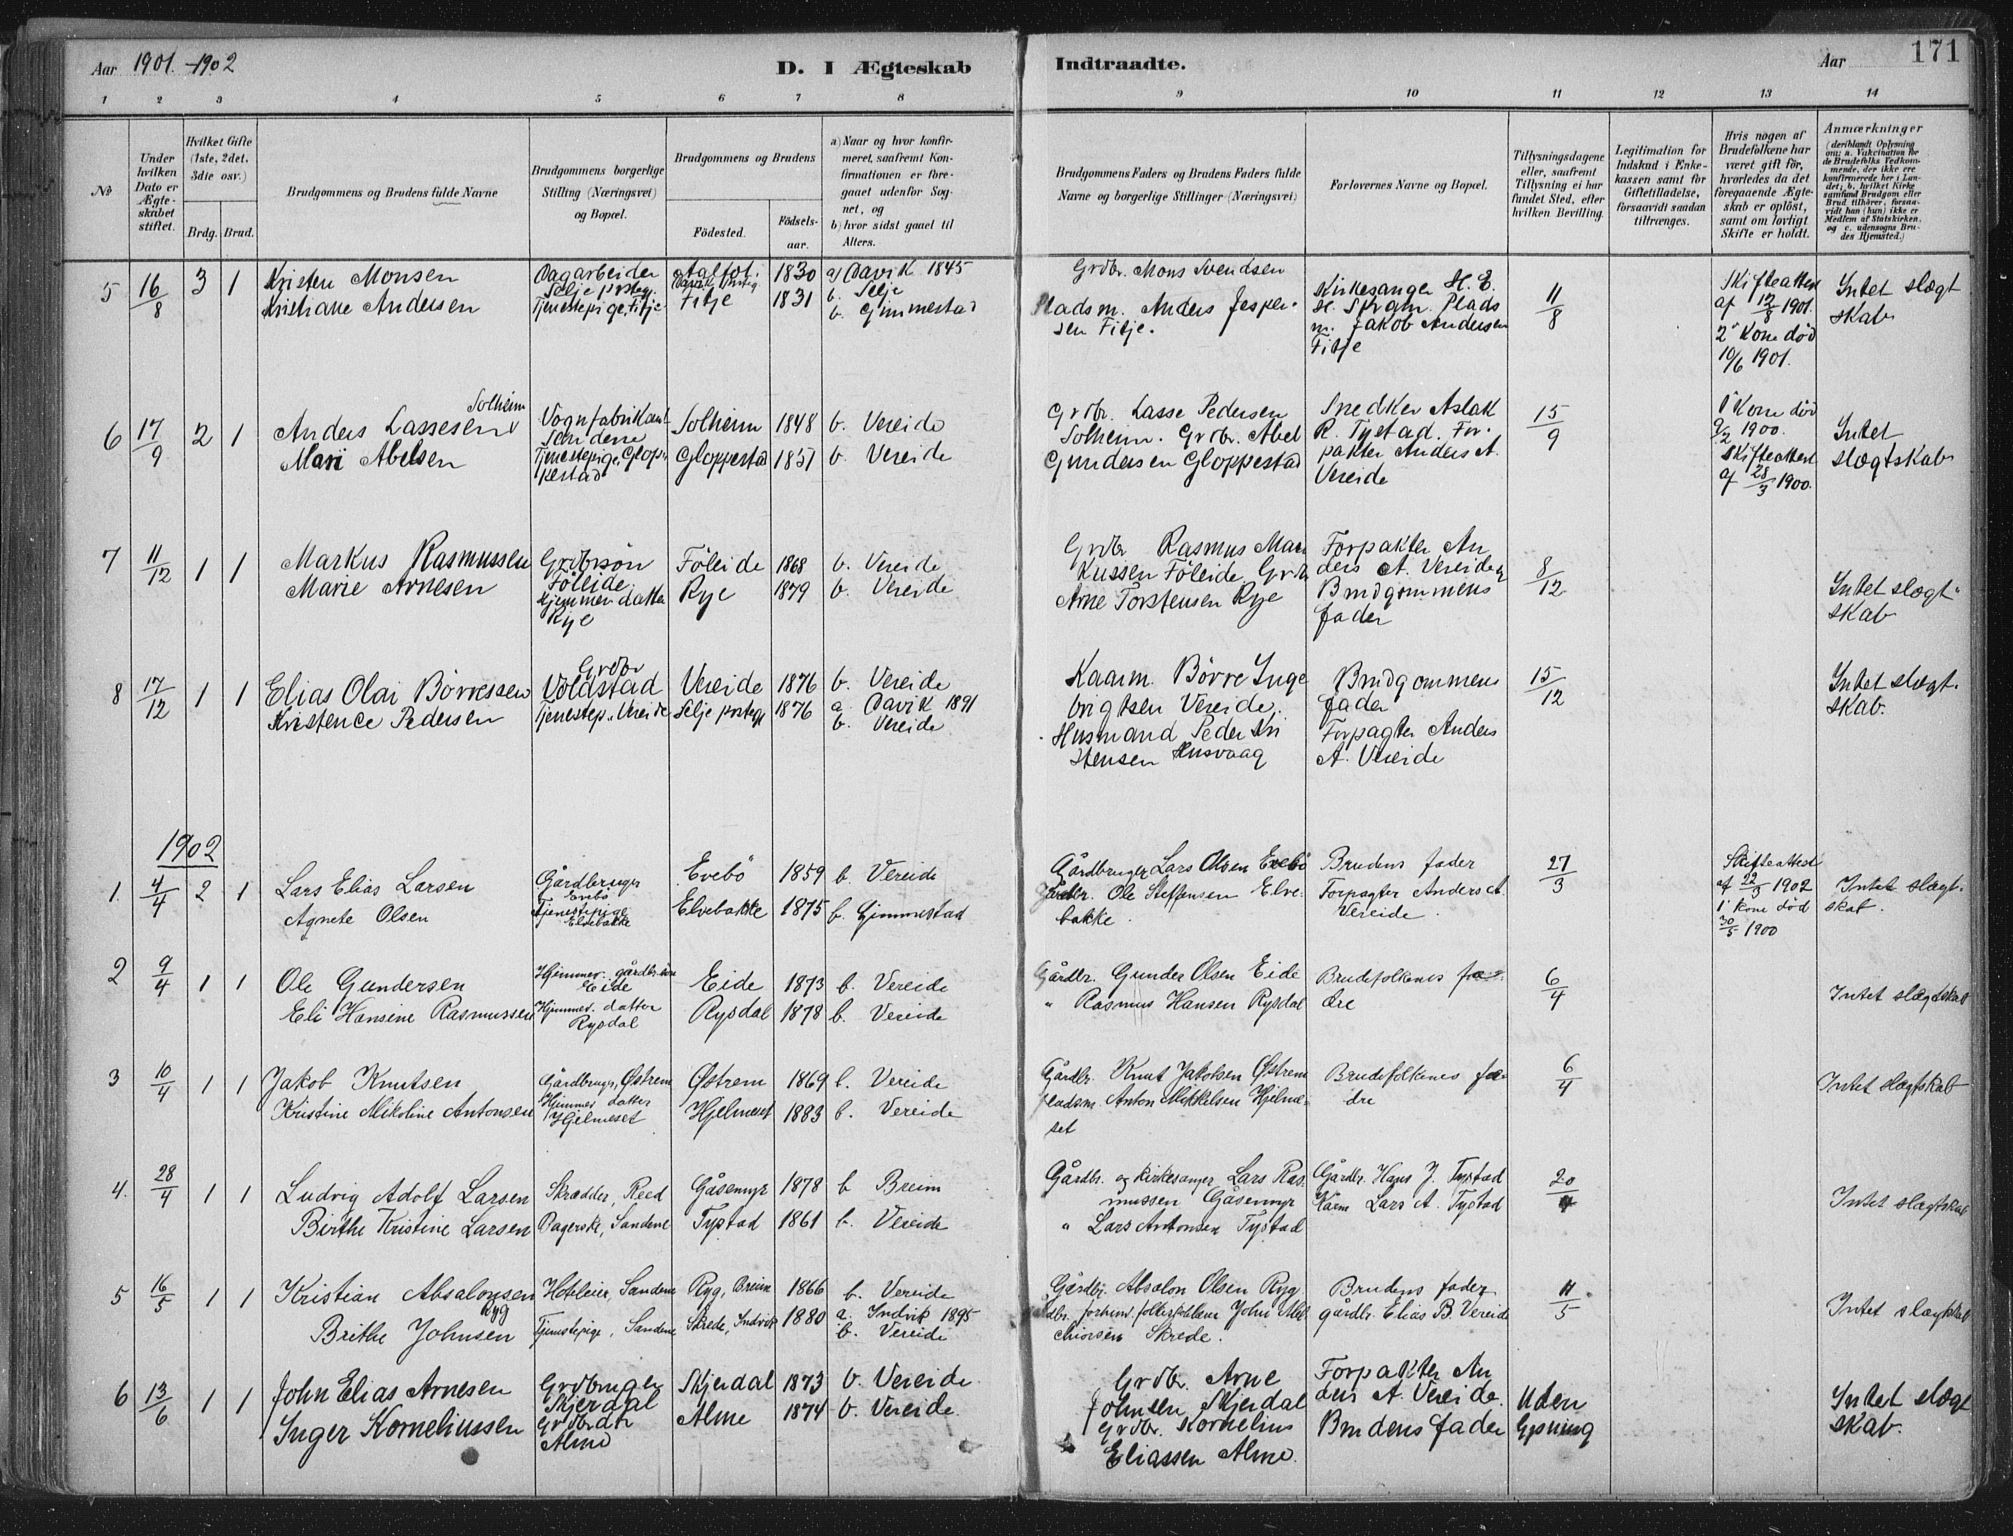 Aar 1901.-1902
D. I Ægteskab
Indtraadte.
Aar
171
1 2 3 4 5 6 7 8 9 10 11 12 13 14
No
Under hvilken Dato er Ægteskabet stiftet.
Hvilket Gifte (1ste, 2det, 3die osv.)
Brdg. Brud.
Brudgommens og Brudens fulde Navne
Brudgommens borgerlige Stilling (Næringsvei) og Bopæl.
Brudgommens og Brudens
Födested.
Födsels-aar.
a) Naar og hvor konfirmeret, saafremt Konfirmationen er foregaaet udenfor Sognet, og
b) hvor sidst gaaet til Alters.
Brudgommens Faders og Brudens Faders fulde Navne og borgerlige Stillinger (Næringsvei)
Forlovernes Navne og Bopæl.
Tillysningsdagene eller, saafremt Tillysning ei har fundet Sted, efter hvilken Bevilling.
Legitimation for Indskud i Enkekassen samt for Giftetilladelse, forsaavidt saadan tiltrænges.
Hvis nogen af Brudefolkene har været gift för, hvorledes da det foregaaende Ægteskab er oplöst, samt om lovligt Skifte er holdt.
Anmærkninger (deriblandt Oplysning om: a. Vakcination for de Brudefolks Vedkommende, der ikke ere konfirmerede her i Landet; b. hvilket Kirkesamfund Brudgom eller Brud tilhörer, forsaavidt han (hun) ikke er Medlem af Statskirken, og c. udensogns Brudes Hjemsted.)
5 16/8 3 1 Kristen Monsen Dagarbeider Aalfot. 1830 a) Davik 1845
Selje prsteg. Davik prstg b. Selje
Kristiane Andersen Tjenestepige, Fitje Fitje 1831 b. Gimmestad
Grdbr. Mons Svendsen
Pladsm. Anders Jespersen Fitje.
Kirkesanger H. E.
Pladsm. Jakob Andersen
Fitje
11/8
Skifteattest
af 12/8 1901.
2' Kone död
10/6 1901.
Intet slægtskab
6 17/9 2 1 Anders Lassesen Solheim Vognfabrikant Sandene Solheim 1848 b. Vereide
Mari Abelsen Tjenestepige, Gloppestad Gloppestad 1851 b. Vereide
Grdbr. Lasse Pedersen
Solheim. Grdbr. Abel
Gundersen Gloppestad
Snedker Aslak
R. Tystad. Forpakter Anders A.
Vereide
15/9
1' Kone död
9/2 1900.
Skifteattest
af 28/3 1900.
Intet slægtskab
7 11/12 1 1 Markus Rasmussen Grdbrsön Föleide Föleide 1868 b. Vereide
Marie Arnesen Hjemmev. datter Rye Rye 1879 b. Vereide
Grdbr Rasmus Markussen Föleide, Grdb
Arne Torstensen Rye
Forpakter Anders A. Vereide
Brudgommens
fader
8/12
Intet slægtskab
8 17/12 1 1 Elias Olai Börresen Grdbr Voldstad Vereide 1876 b. Vereide
Kristence Pedersen Tjenestep. Vereide Selje prsteg. 1876 a. Davik 1891
b. Vereide
Kaarm. Börre Ingebrigtsen Vereide.
Husmand Peder Kristensen Husvaag
Brudgommens
fader
Forpagter Anders
A. Vereide
15/12
Intet slægtskab.
1902
1. 4/4 2 1 Lars Elias Larsen Gårdbruger Evebö Evebö 1859 b. Vereide
Agnete Olsen Tjenestepige Elvebakke Elvebakke 1875 b. Gimmestad
Gårdbruger Lars Olsen Evebö
Gårdbr. Ole Steffensen Elvebakke
Brudens fader
Forpagter Anders A.
Vereide
27/3
Skifteattest
af 22/3 1902
1' kone död
30/5 1900
Intet slægtskab.
2 9/4 1 1 Ole Gundersen Hjemmev. gårdbr.sön Eide Eide 1873 b. Vereide
Eli Hansine Rasmussen Hjemmev. datter Rysdal Rysdal 1878 b. Vereide
Gårdbr. Gunder Olsen Eide
" Rasmus Hansen Rysdal
Brudefolkenes fædre
6/4
Intet slægtskab
3 10/4 1 1 Jakob Knutsen Gårdbruger, Østrem Østrem 1869 b. Vereide
Kristine Nikoline Antonsen Hjemmev. datter Hjelmeset Hjelmeset 1883 b. Vereide
Gårdbr. Knut Jakobsen Østrem
pladsm. Anton Mikkelsen Hjelmeset
Brudefolkenes fædre
6/4
Intet slægtskab
4. 28/4 1 1 Ludvig Adolf Larsen Skrædder, Reed Gåsemyr 1878 b Breim
Birthe Kristine Larsen Bagerske, Sandene Tystad 1861 b. Vereide
Gårdbr. og kirkesanger Lars Rasmussen Gåsemyr
" Lars Antonsen Tystad
Gårdbr. Hans J. Tystad
Kårm Lars A. Tystad
20/4
Intet slægtskab
5 16/5 1 1 Kristian Absalonsen Ryg Hoteleier, Sandene Ryg, Breim 1866 b. Vereide
Brithe Johnsen Tjenestepige, Sandene Skrede, Indvik 1880 a. Indvik 1895
b. Vereide
Gårdbr. Absalon Olsen Ryg
Gårdbr. John Melchiorsen Skrede.
Brudens fader
gårdbr. Elias B. Vereide
11/5
Intet slægtskab
6 13/6 1 1 John Elias Arnesen Grdbruger Skjerdal Skjerdal 1873 b. Vereide.
Inger Korneliussen Grdbrdtr Alme Alme 1874 b. Vereide.
Grdbr. Arne
Johnsen Skjerdal
Grdbr. Kornelius
Eliassen Alme.
Forpakter Anders A. Vereide.
Brudens fader
Uden
lysning
Intet slægtskab.